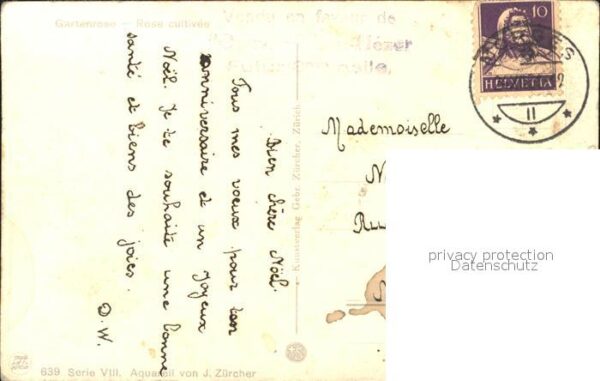 Gartenrose – Rose cultivée
Vente en faveur de
Bien chère Noël.
Tous mes voeux pour ton
anniversaire et un joyeux
Noël. Je te souhaite une bonne
santé et biens des joies.
D.W.
Kunstverlag Gebr. Zürcher, Zürich
10
HELVETIA
II
Mademoiselle
N
privacy protection
Datenschutz
639 Serie VIII. Aquarell von J. Zürcher